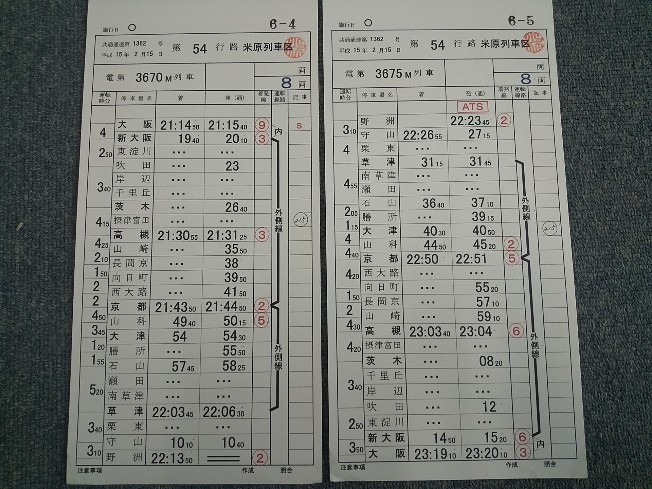 施行日 〇
6-4
共通通達第 1362 号
平成 15年 2月15日
第 54 行路 米原列車区
電第 3670M 列車
8両
運転時分 停車場名 着 発(通) 着発線 運転線路 記事
4 大阪 21:14 50 21:15 40 ⑨ 内 S
新大阪 19 40 20 10 ③
2 50 東淀川 ・・・ ・・・
吹田 ・・・ 23
岸辺 ・・・ ・・・
3 40 千里丘 ・・・ ・・・
茨木 ・・・ 26 40 外側線
4 15 摂津富田 ・・・ ・・・
高槻 21:30 55 21:31 25 ③
4 25 山崎 ・・・ 35 50
2 10 長岡京 ・・・ 38
1 50 向日町 ・・・ 39 50
2 西大路 ・・・ 41 50
2 京都 21:43 50 21:44 50 ②
4 50 山科 49 40 50 15 ⑤
3 45 大津 54 54 30
1 20 膳所 ・・・ 55 50 外側線
1 55 石山 57 45 58 25
瀬田 ・・・ ・・・
5 20 南草津 ・・・ ・・・
草津 22:03 45 22:06 30
3 40 栗東 ・・・ ・・・
守山 10 10 10 40
3 10 野洲 22:13 50 ②
注意事項 作成 照合
施行日 〇
6-5
共通通達第 1362 号
平成 15年 2月15日
第 54 行路 米原列車区
電第 3675M 列車
8両
運転時分 停車場名 着 発(通) 着発線 運転線路 記事
ATS
野洲 22:23 45 ②
3 10 守山 22:26 55 27 15
4 栗東 ・・・ ・・・
草津 31 15 31 45
南草津 ・・・ ・・・
4 55 瀬田 ・・・ ・・・
石山 36 40 37 10 外側線
2 05 膳所 ・・・ 39 15
1 15 大津 40 30 40 50
4 山科 44 50 45 20 ②
4 40 京都 22:50 22:51 ⑤
西大路 ・・・ ・・・
向日町 ・・・ 55 20
2 長岡京 ・・・ 57 10
2 山崎 ・・・ 59 10
4 30 高槻 23:03 40 23:04 ⑥
摂津富田 ・・・ ・・・ 外側線
茨木 ・・・ 08 20
千里丘 ・・・ ・・・
3 40 岸辺 ・・・ ・・・
吹田 ・・・ 12
東淀川 ・・・ ・・・
2 50 新大阪 14 50 15 20 ⑥ 内
3 50 大阪 23:19 10 23:20 10 ③
注意事項 作成 照合